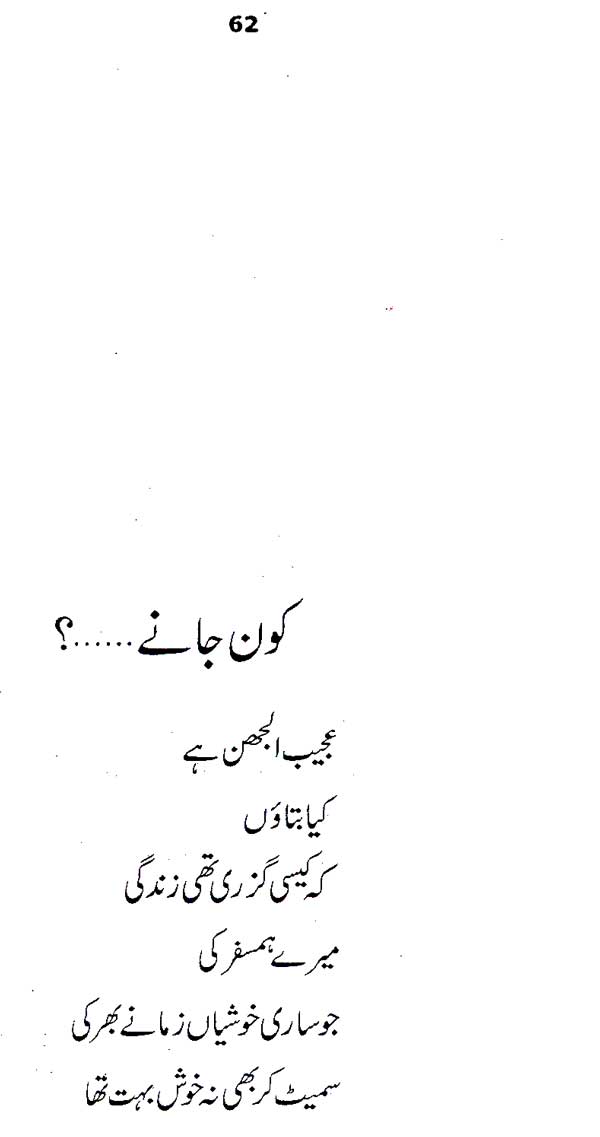 62
کون جانے......؟
عجیب الجھن ہے
کیا بتاؤں
کہ کیسی گزری تھی زندگی
میرے ہمسفر کی
جو ساری خوشیاں زمانے بھر کی
سمیٹ کر بھی نہ خوش بہت تھا